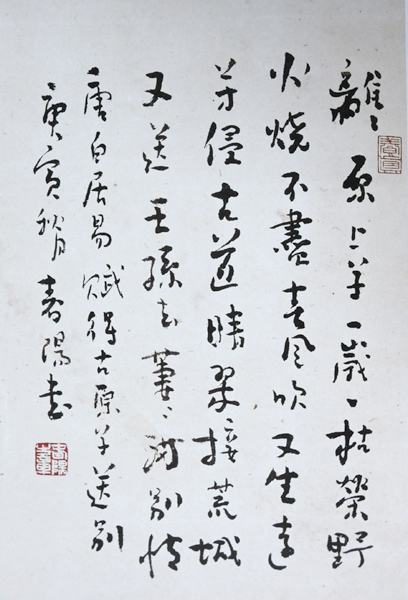 離〻原上草一歲一枯榮野
火燒不盡春風吹又生遠
芳侵古道晴翠接荒城
又送王孫去萋〻滿別情
唐白居易賦得古原草送別
庚寅秋月春陽書